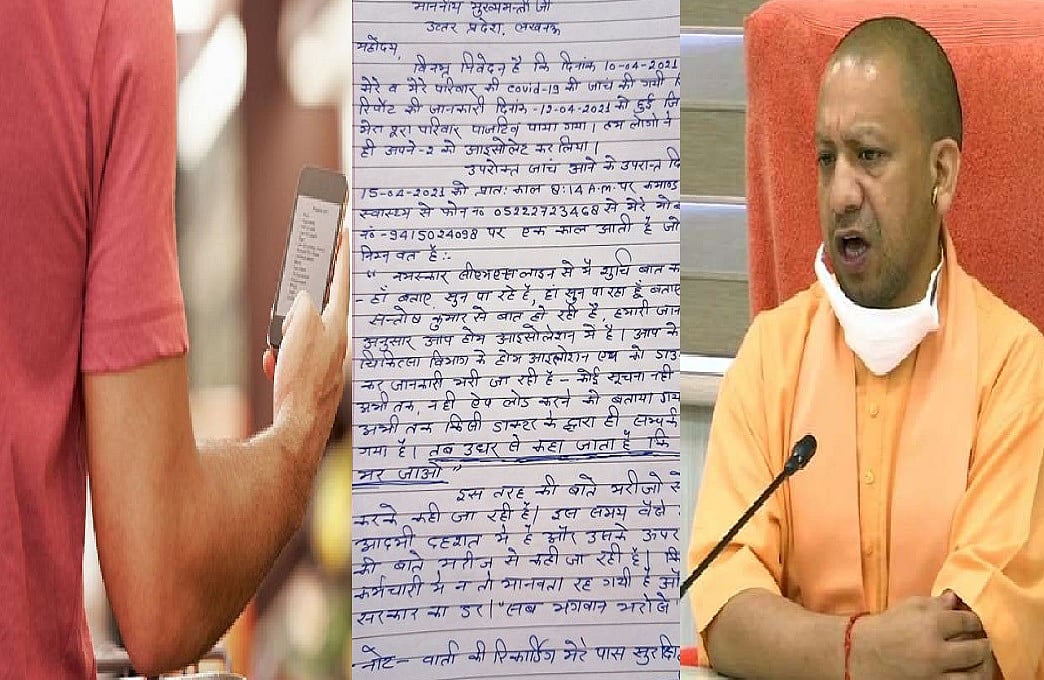 माननीय मुख्यमन्त्री जी
उत्तर प्रदेश, लखनऊ
महोदय,
विनम्र निवेदन है कि दिनांक 10-04-2021
मेरे व मेरे परिवार की covid-19 की जांच की गयी
रिर्पोट की जानकारी दिनांक-12-04-2021 को हुई
मेरा पूरा परिवार पाजटिव पाया गया। हम लोगो ने
ही अपने-2 को आइसोलेट कर लिया।
उपरोक्त जांच आने के उपरान्त
15-04-2021 को प्रातः काल 8:14 A.m. पर कमाण्ड
स्वास्थ्य से फोन न० 05222723468 से मेरे
नं०-9415024098 पर एक काल आती है जो
निम्न वत है:-
" नमस्कार सीएमएस लाइन से मैं शुचि बात
- हाँ बताए सुन पा रहे है, हां सुन पा रहा हूँ बताए
सन्तोष कुमार से बात हो रही है, हमारी
अनुसार आप होम आइसोलेशन में है। आप के
चिकित्सा विभाग के होम आइसोलेशन एप को
कर जानकारी भरी जा रही है - कोई सूचना नही
अभी तक, नही ऐप लोड करने को बताया
अभी तक किसी डाक्टर के द्वारा ही सम्पर्क
गया है। तब उधर से कहा जाता है कि
मर जाओ "
इस तरह की बाते मरीजो से
करके कही जा रही है। इस समय वैसे
आदमी दहशत में है और उसके ऊपर
की बाते मरीज से कही जा रही है।
कर्मचारी मे न तो मानवता रह गयी है
सरकार का डर। "सब भगवान भरोसे
नोट- वार्ता की रिकार्डिंग मेरे पास